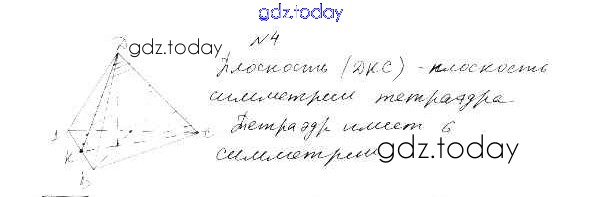 gdz.today
№4
gdz.today
Плоскость (DKC) - плоскость
симметрии тетраэдра.
Тетраэдр имеет 6
симметрии
gdz.today
D
A
K
B
C